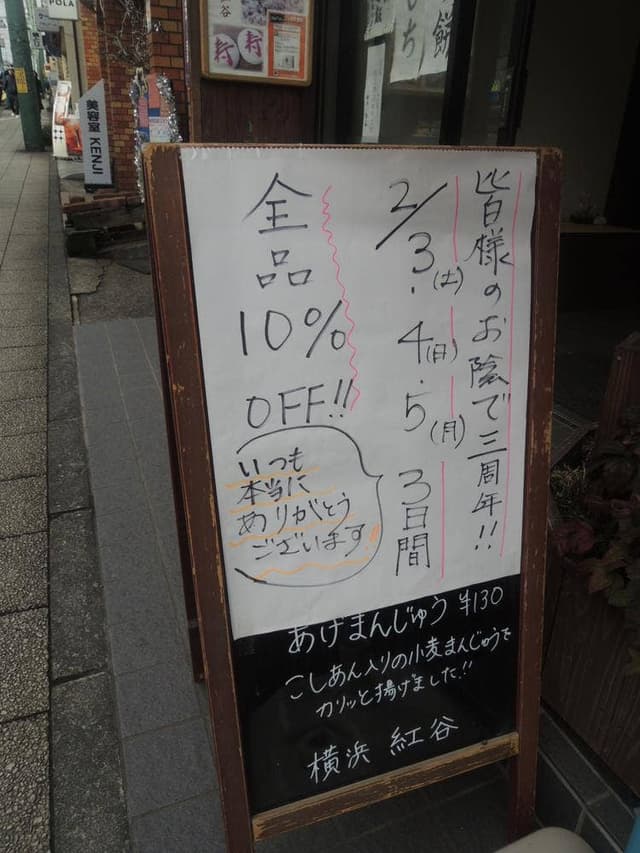 皆様のお陰で三周年!!
2/3(土)・4(日)・5(月) 3日間
全品
10%
OFF!!
いつも
本当に
ありがとう
ございます!!
あげまんじゅう ¥130
こしあん入りの小麦まんじゅうを
カリッと揚げました!!
横浜 紅谷
美容室 KENJI
POLA
寿
寿
谷
もち
餅